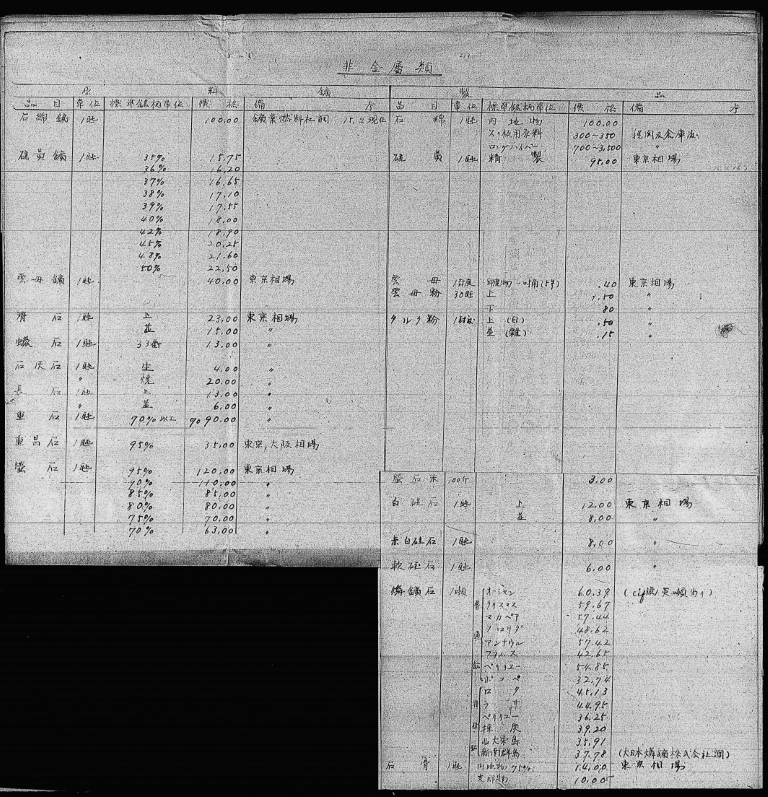 非金属類
原 料 鉱 製 品
品目 單位 標準銘柄單位 價格 備考 品目 單位 標準銘柄單位 價格 備考
石綿鉱 1瓲 100.00 石綿 1瓲 内地物 100.00
300~350
700~3,500 〃
硫黄鉱 1瓲 35% 15.75 硫黄 1瓲 精製 95.00 東京相場
36% 16.20
37% 16.65
38% 17.10
39% 17.55
40% 18.00
42% 18.90
45% 20.25
48% 21.60
50% 22.50
雲母鉱 1瓲 40.00 東京相場 雲母 .40 東京相場
雲母粉 上 1.50 〃
下 80 〃
滑石 1瓲 上 23.00 東京相場 タルク粉 上(白) .50 〃
並 15.00 〃 並(雑) .15 〃
蝋石 1瓲 33番 13.00 〃
石灰石 1瓲 生 4.00 〃
〃 焼 20.00 〃
長石 1瓲 上 13.00 〃
〃 並 6.00 〃
重石 1瓲 70%以上 90.00 〃
重晶石 1瓲 95% 35.00 東京,大阪相場
螢石 1瓲 95% 120.00 東京相場
90% 110.00 〃
85% 85.00 〃
80% 80.00 〃
75% 70.00 〃
70% 63.00 〃
螢石末 100斤 3.00
白硅石 1瓲 上 12.00 東京相場
並 8.00 〃
赤白硅石 1瓲 8.00 〃
軟硅石 1瓲 6.00 〃
燐鉱石 1噸 オーシャン 60.39
クリスマス 59.67
マカテア 57.44
フロリダ 48.62
57.42
42.65
ペリリユー 54.85
32.74
ロタ 45.13
44.95
ペリリユー 36.25
39.20
北大東島 35.91
新南群島 37.78 (大日本燐鉱株式会社調)
石膏 1瓲 内地物 75% 14.00 東京相場
支那物 10.00